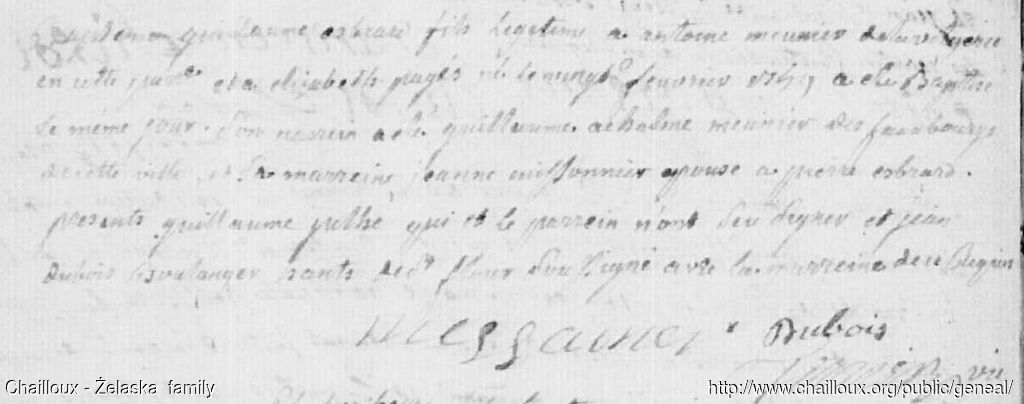 guillaume esbrard fils legitime a antoine meunier de la
en cette par^se et a elizabeth pagés né le vingt^e fevrier 1749 a été Baptisé
le même jour. son parrein a été guillaume achalme meunier des fauxbourgs
de cette ville, et la marreine jeanne missonnier epouse a pierre esbrard.
presents guillaume qui et le parrein n'ont sçu signer et jean
dubois Boulanger hants de s^t flour soussigné avec la marreine de ce requis
Dubois
vic
Chailloux - Żelaska family
http://www.chailloux.org/public/geneal/